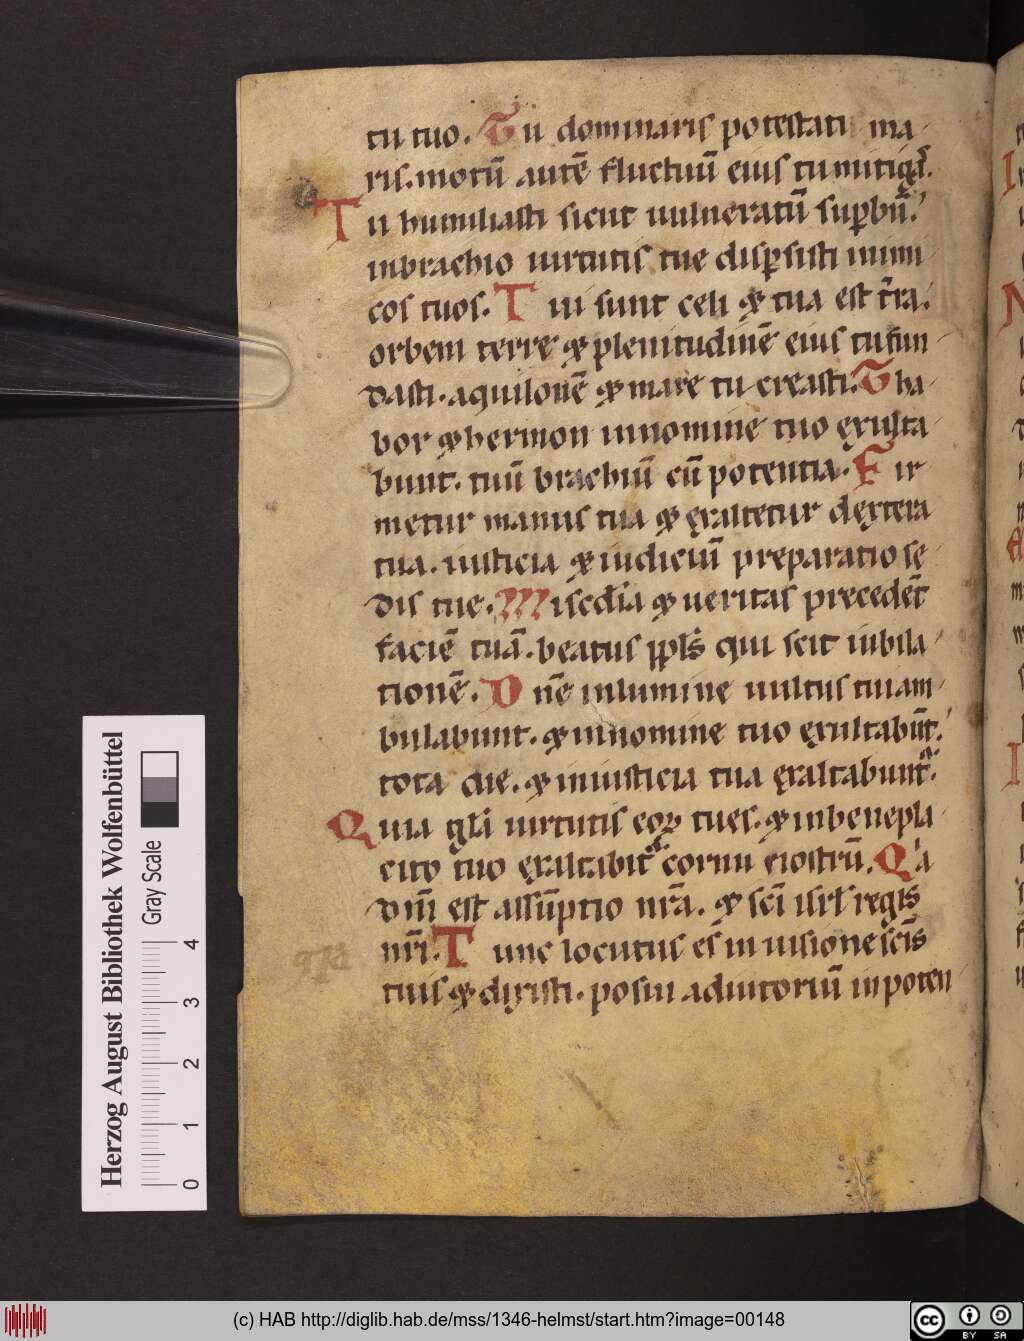 tu tuo. Tu dominaris potestati ma
ris. motū autē fluctuū eius tu mitigas.
Tu humiliasti sicut uulneratū supbū.
inbrachio uirtutis tue dispsisti inimi
cos tuos. Tui sunt celi & tua est tra.
orbem terre & plenitudinē eius tu fun
dasti. aquilonē & mare tu creasti. Tha
bor & hermon innomine tuo exulta
bunt. tuū brachiū cū potentia. Fir
metur manus tua & exaltetur dextera
tua. iusticia & iudiciū preparatio se
dis tue. Miscdia & ueritas precedēt
faciē tuā. beatus ppls qui scit iubila
tionē. Dnē inlumine uultus tui am
bulabunt. & innomine tuo exultabūt.
tota die. & iniusticia tua exaltabunt.
Quia gli uirtutis eoꝝ tu es. & inbenepla
cito tuo exaltabit cornu nostrū. Qa
dni est assūptio nra. & sci isrl regis
nri. Tunc locutus es in uisione scis
tuis & dixisti. posui adiutoriū inpoten
Herzog August Bibliothek Wolfenbüttel
Gray Scale
0 1 2 3 4
(c) HAB http://diglib.hab.de/mss/1346-helmst/start.htm?image=00148
cc BY SA